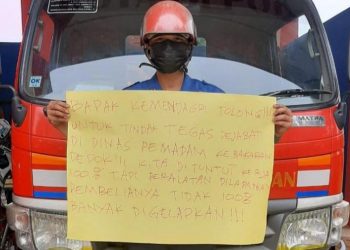 BAPAK KEMENDAGRI TOLONG
UNTUK TINDAK TEGAS PEJABAT
DI DINAS PEMADAM KEBAKARAN
DEPOK!! KITA DI TUNTUT KERJA
100% TAPI PERALATAN DILAPANGAN
PEMBELIANYA TIDAK 100%
BANYAK DIGELAPKAN!!!